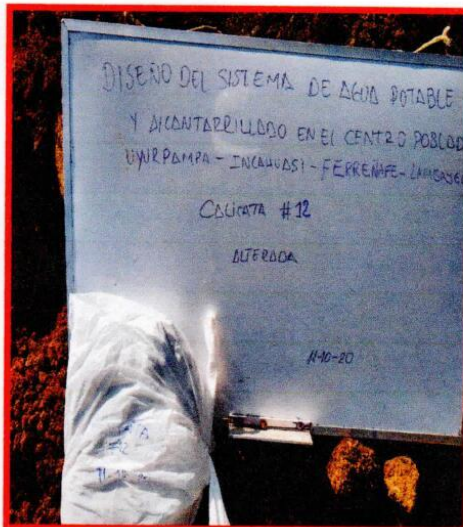 DISEÑO DEL SISTEMA DE AGUA POTABLE
Y ALCANTARRILLADO EN EL CENTRO POBLAD
UYURPAMPA - INCAHUASI - FERREÑAFE - LAMBAYEQ
CALICATA #12
ALTERADA
11-10-20